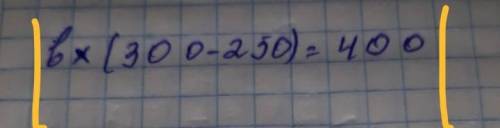 в × (300-250) = 400